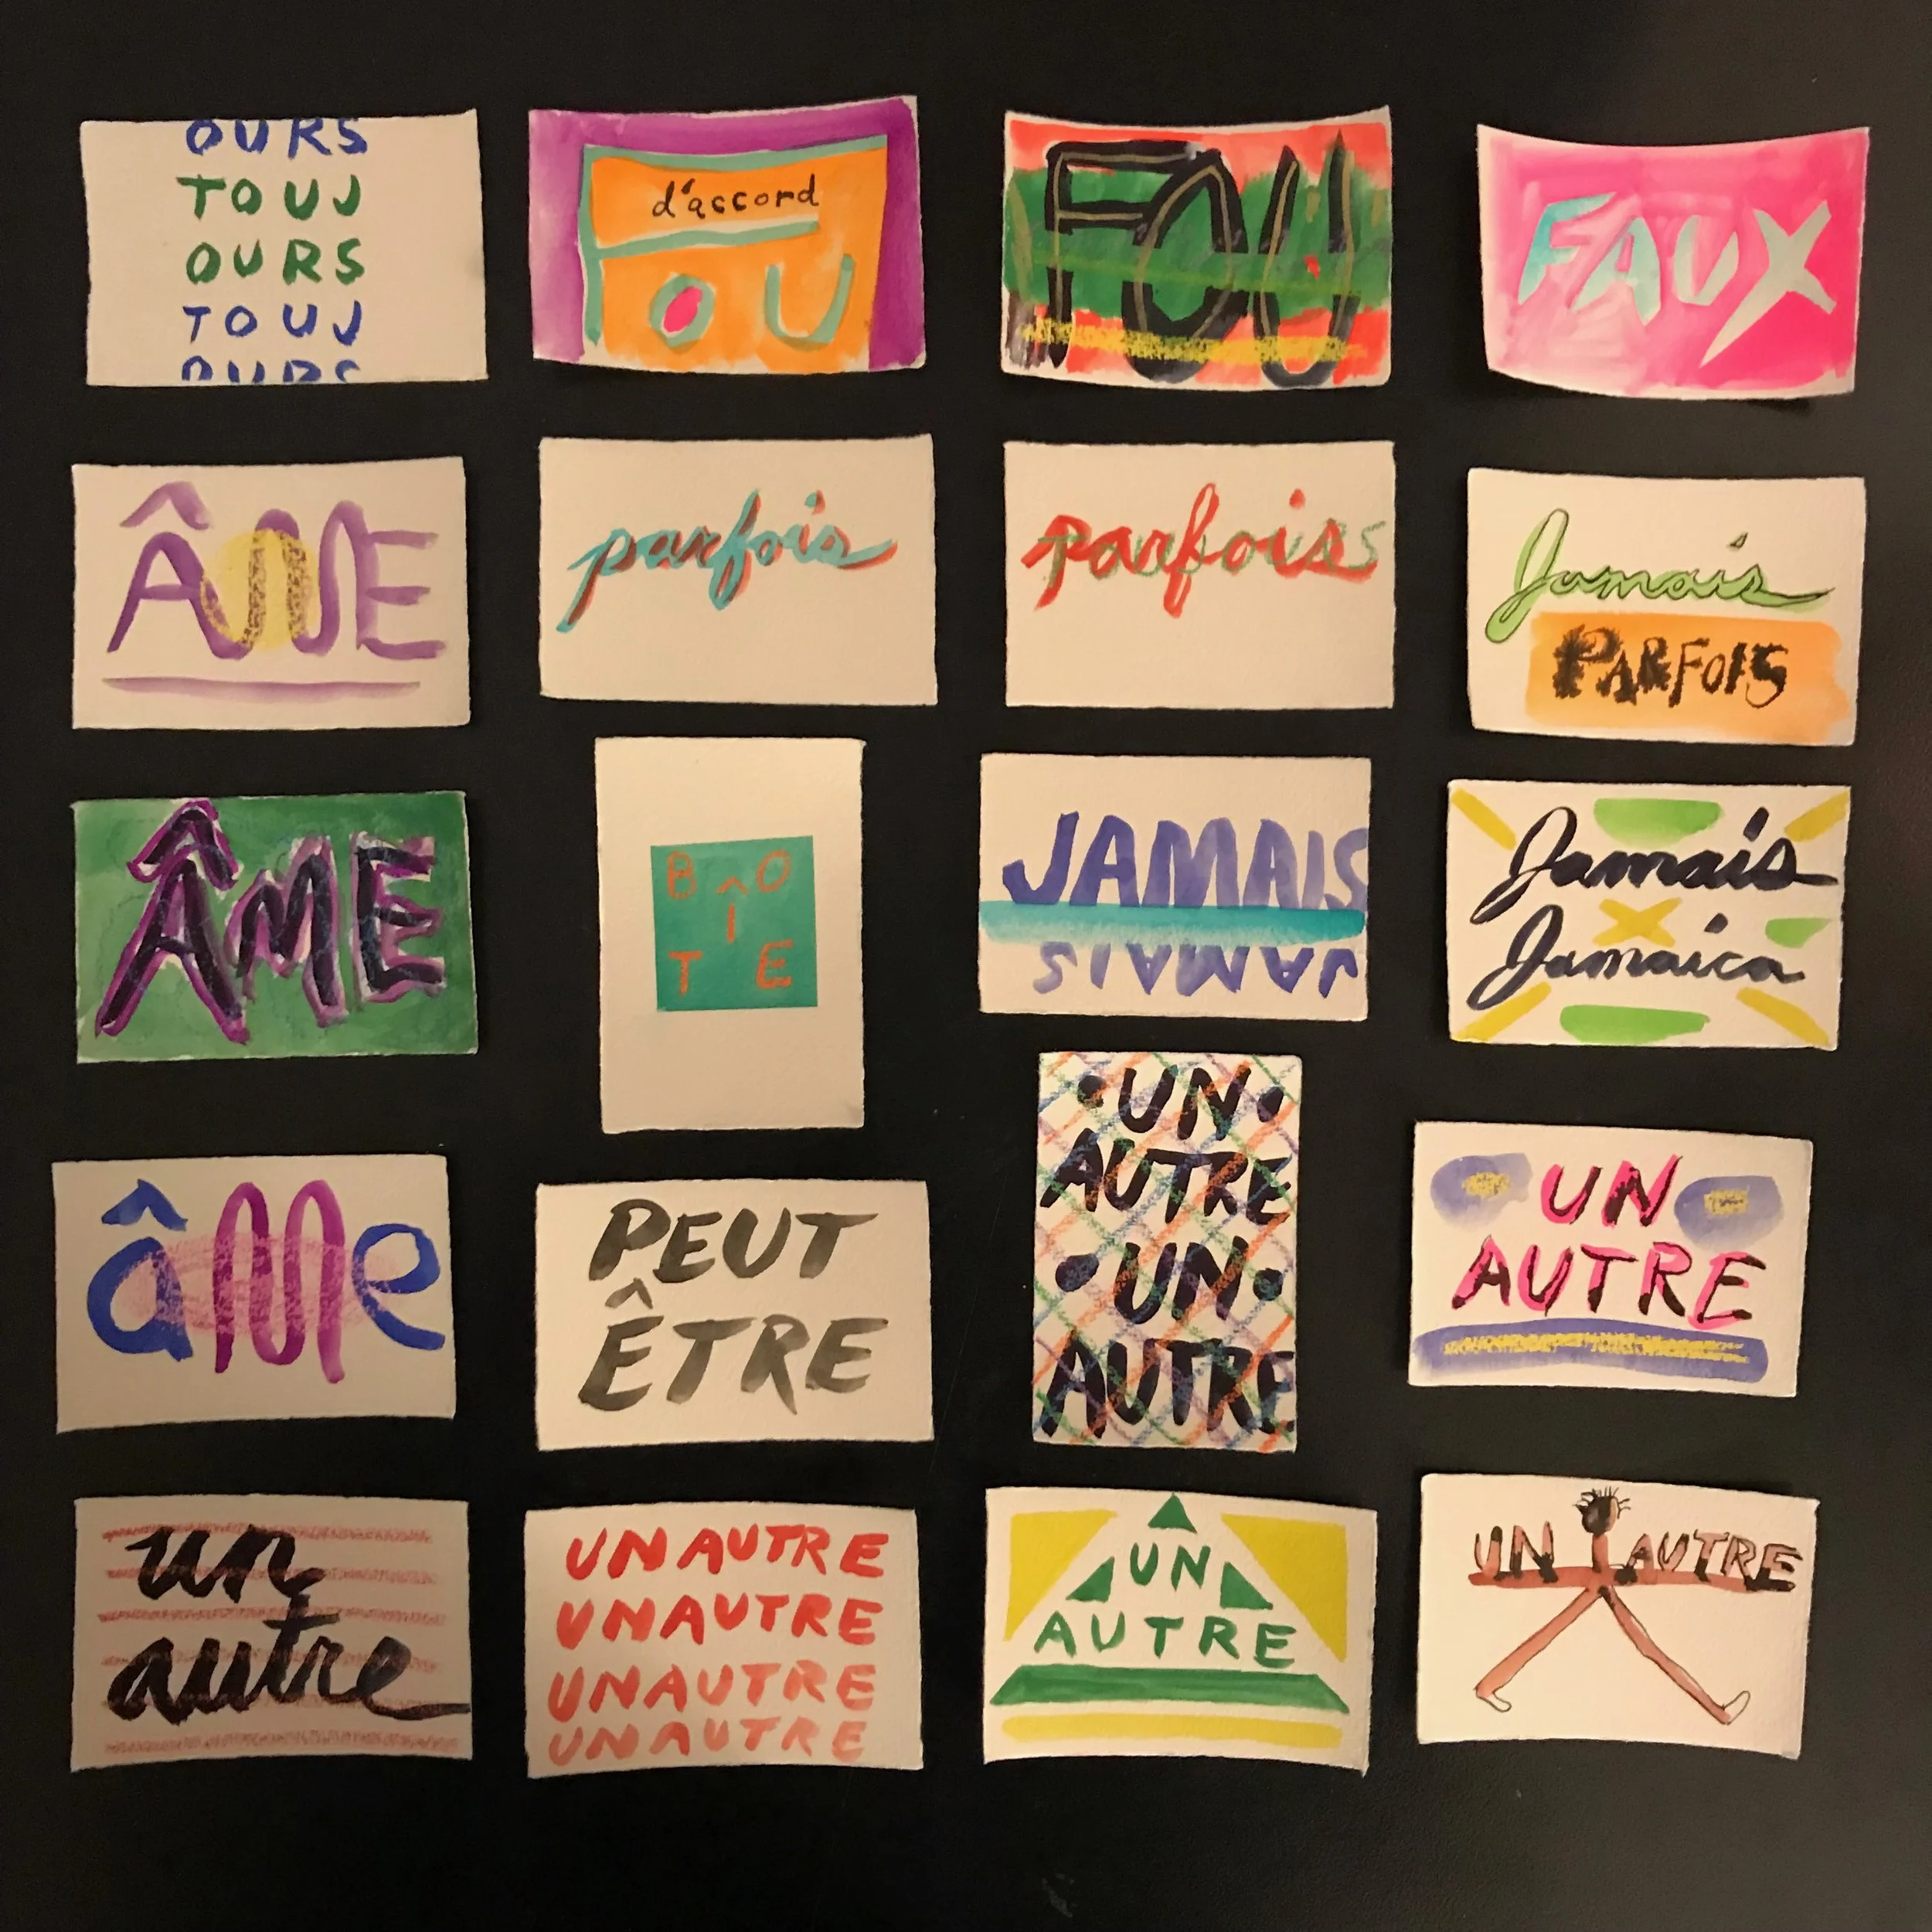 OURS
TOUJ
OURS
TOUJ
OURS
d'accord
OU
FOU
FAUX
ÂME
parfois
parfois
Jamais
PARFOIS
ÂME
B O
Î
T E
JAMAIS
JAMAIS
Jamais
Jamaica
âme
PEUT
ÊTRE
•UN•
AUTRE
•UN•
AUTRE
UN
AUTRE
un
autre
UN AUTRE
UNAUTRE
UNAUTRE
UNAUTRE
UN
AUTRE
UN AUTRE